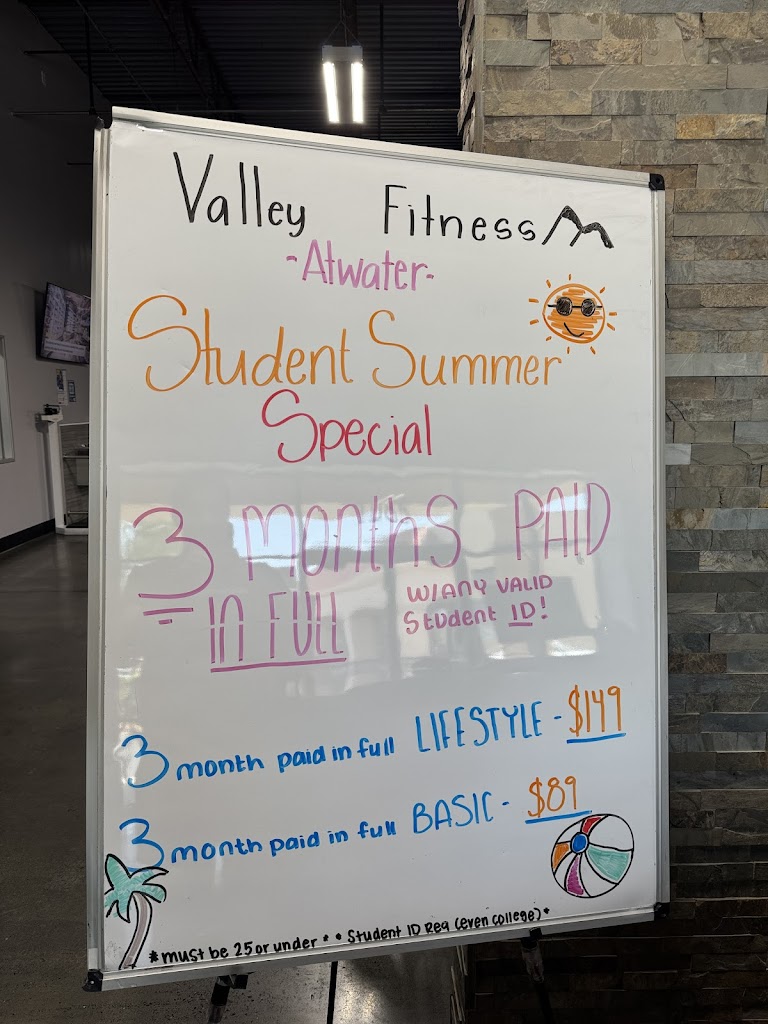 Valley Fitness
-Atwater-
Student Summer
Special
3 MONTHS PAID
IN FULL
W/ANY VALID
Student ID!
3 month paid in full LIFESTYLE - $149
3 month paid in full BASIC - $89
*must be 25 or under * * Student ID Req (even college)*